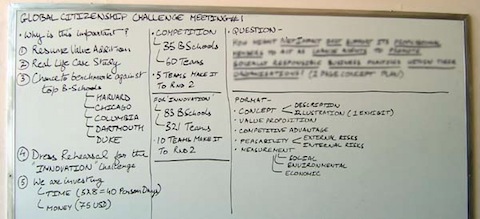 GLOBAL CITIZENSHIP CHALLENGE MEETING #1
Why is this important?
① RESUME VALUE ADDITION
② REAL LIFE CASE STUDY
③ CHANCE TO BENCHMARK AGAINST
TOP B-SCHOOLS
HARVARD
CHICAGO
COLUMBIA
DARTMOUTH
DUKE
④ DRESS REHEARSAL FOR THE
"INNOVATION" CHALLENGE
⑤ WE ARE INVESTING
TIME (5X8 = 40 PERSON DAYS)
MONEY (75 USD)
COMPETITION
35 B SCHOOLS
60 TEAMS
5 TEAMS MAKE IT
TO RND 2
FOR 'INNOVATION'
83 B SCHOOLS
321 TEAMS
10 TEAMS MAKE IT
TO RND 2
QUESTION -
(2 PAGE CONCEPT PLAN)
FORMAT -
CONCEPT
DESCRIPTION
ILLUSTRATION (1 EXHIBIT)
VALUE PROPOSITION
COMPETITIVE ADVANTAGE
FEASIBILITY
EXTERNAL RISKS
INTERNAL RISKS
MEASUREMENT
SOCIAL
ENVIRONMENTAL
ECONOMIC